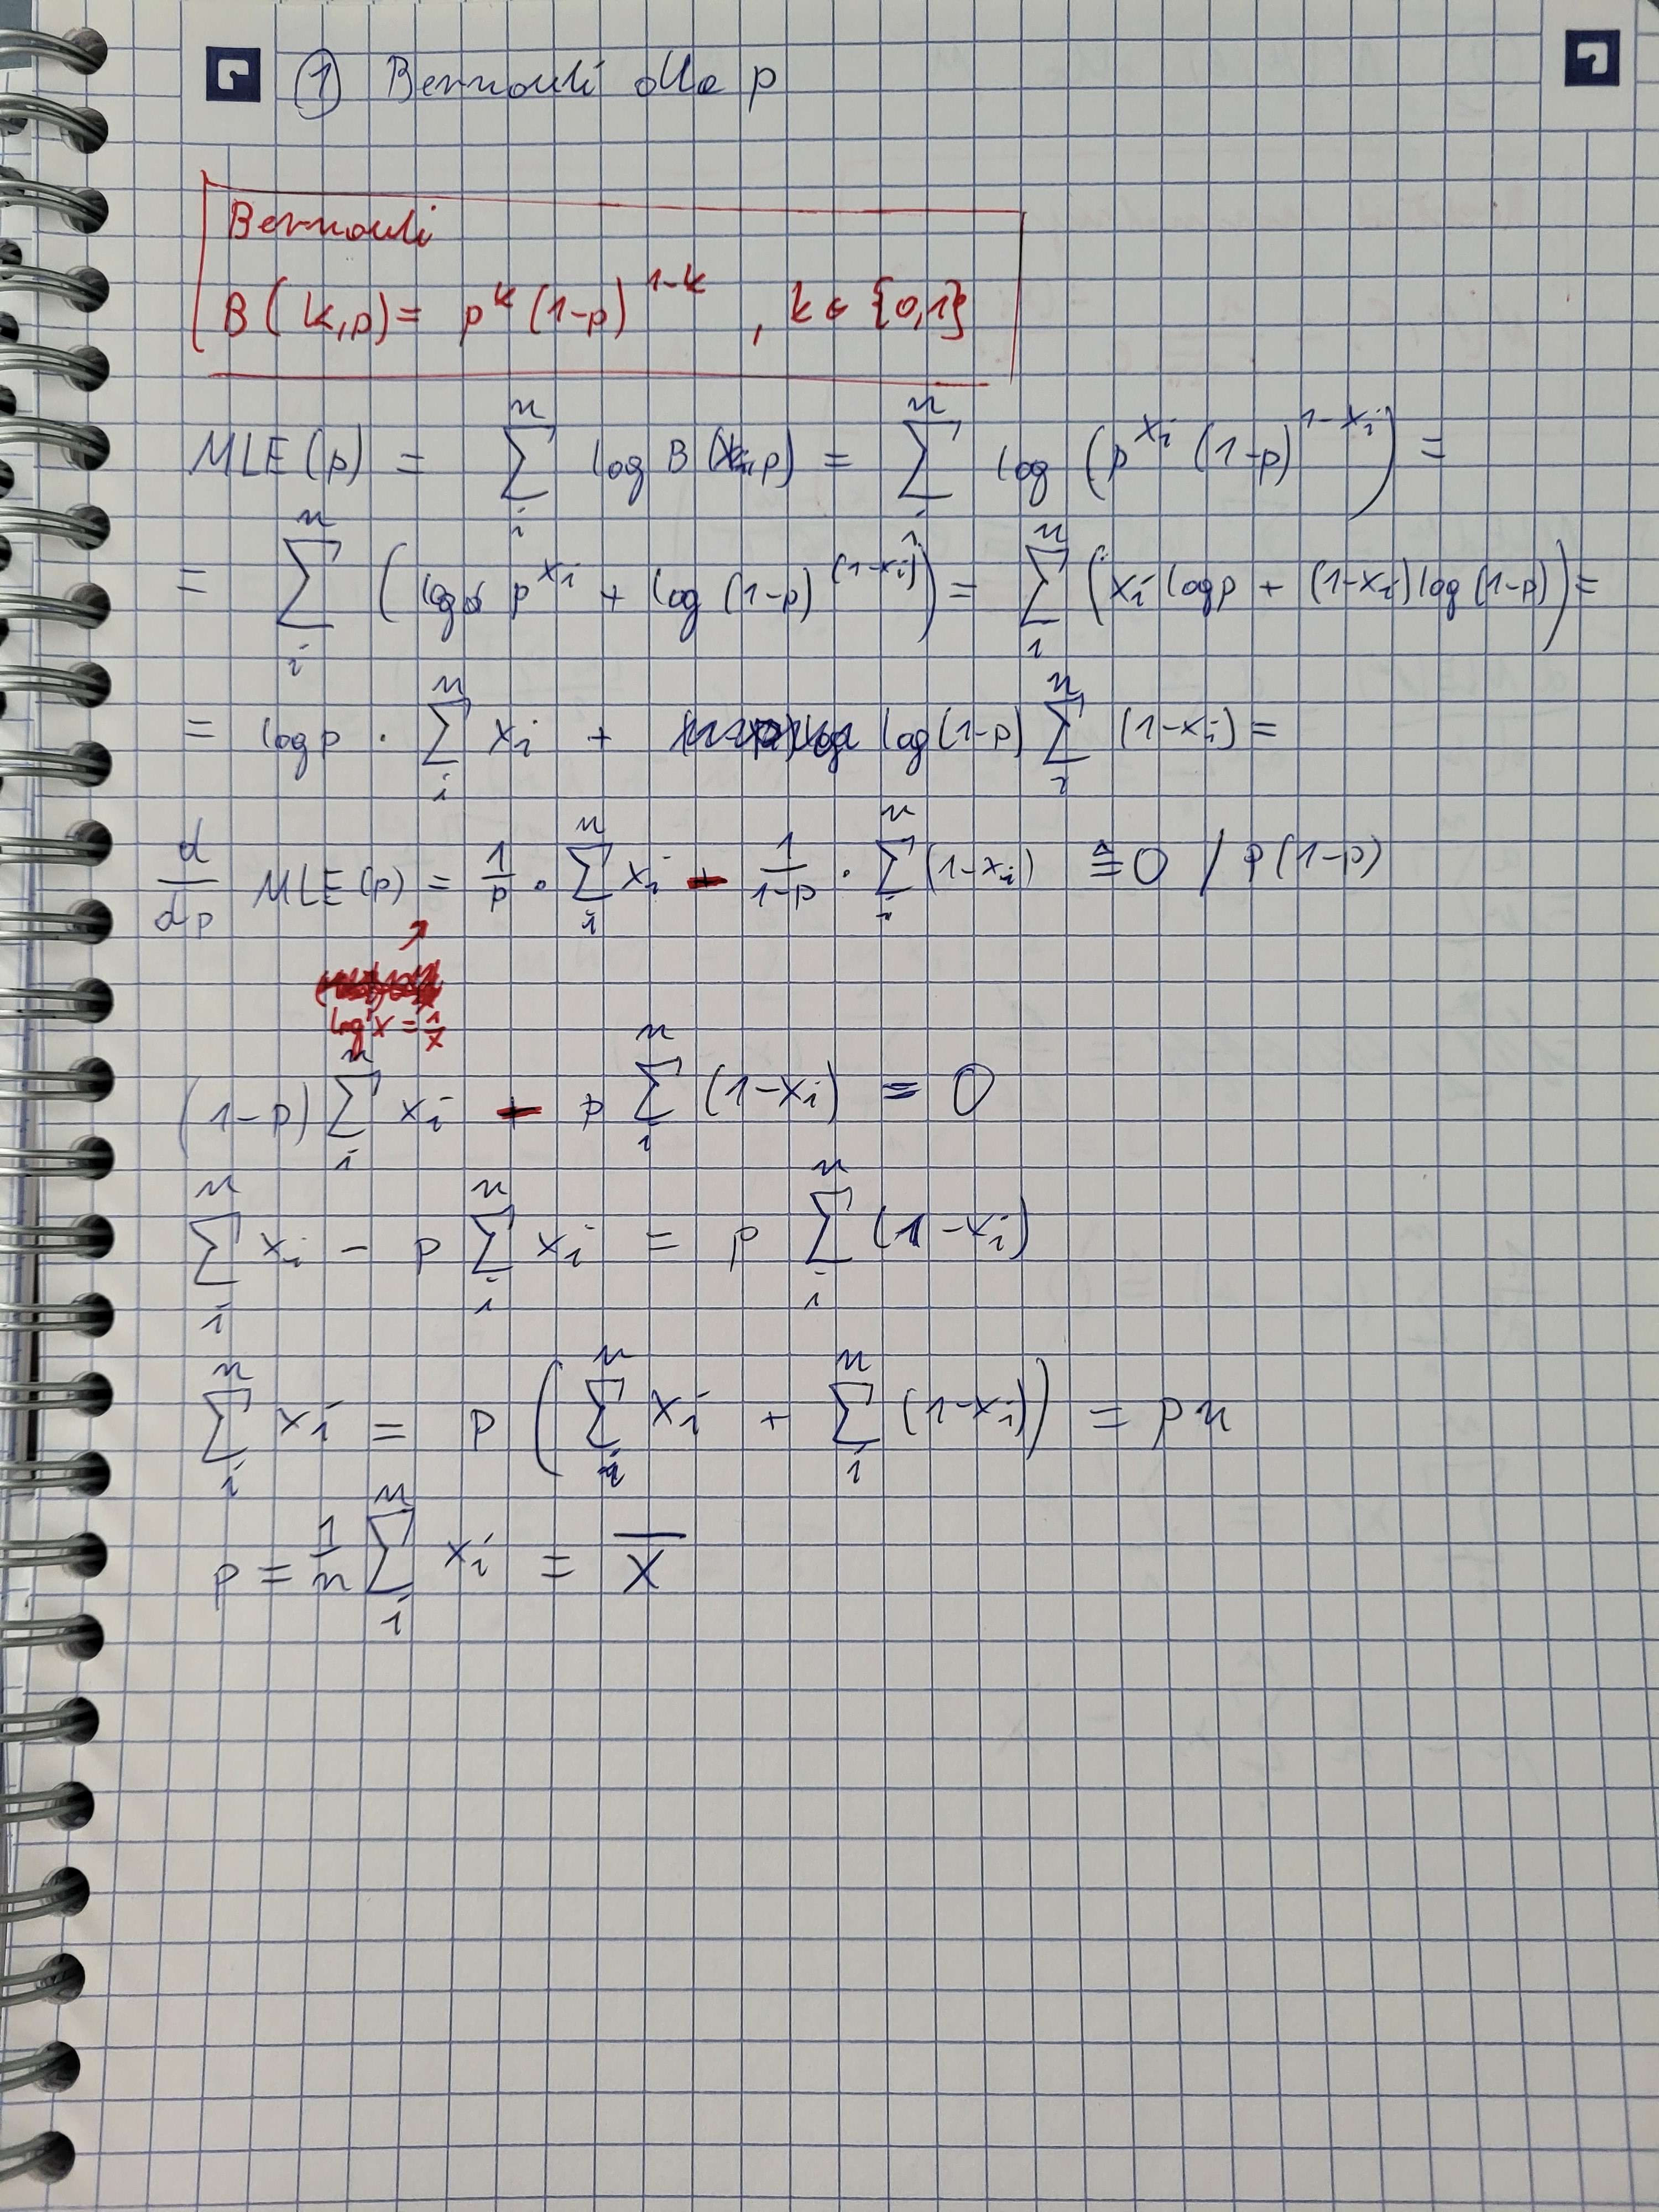 ① Bernouli dla p
Bernouli
B(k,p) = p^k (1-p)^{1-k} , k ∈ {0,1}
MLE(p) = ∑_i^n log B(x_i,p) = ∑_i^n log (p^{x_i} (1-p)^{1-x_i}) =
= ∑_i^n (log p^{x_i} + log (1-p)^{(1-x_i)}) = ∑_i^n (x_i log p + (1-x_i) log (1-p)) =
= log p · ∑_i^n x_i + log(1-p) ∑_i^n (1-x_i) =
d/dp MLE(p) = 1/p · ∑_i^n x_i - 1/(1-p) · ∑_i^n (1-x_i) ≙ 0 / p(1-p)
↗
log' x = 1/x
(1-p) ∑_i^n x_i - p ∑_i^n (1-x_i) = 0
∑_i^n x_i - p ∑_i^n x_i = p ∑_i^n (1-x_i)
∑_i^n x_i = p (∑_i^n x_i + ∑_i^n (1-x_i)) = pn
p = 1/n ∑_i^n x_i = X̅